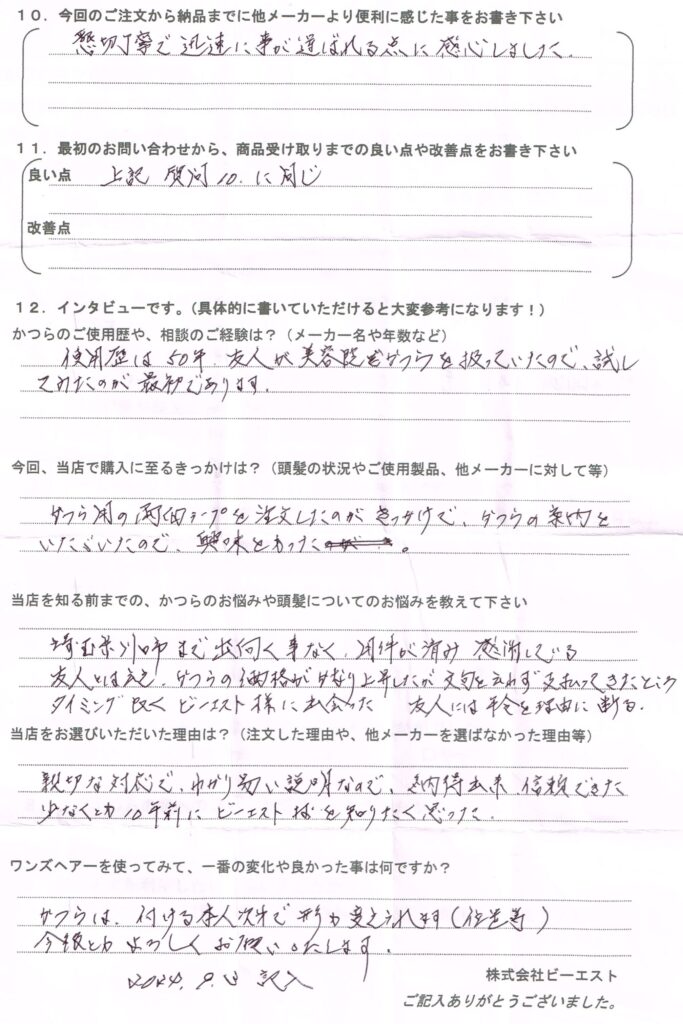 10．今回のご注文から納品までに他メーカーより便利に感じた事をお書き下さい
懇切丁寧で迅速に事が運ばれる点に感心しました.
11．最初のお問い合わせから、商品受け取りまでの良い点や改善点をお書き下さい
良い点 上記 質問10.に同じ
改善点
12．インタビューです。（具体的に書いていただけると大変参考になります！）
かつらのご使用歴や、相談のご経験は？（メーカー名や年数など）
使用歴は50年. 友人が美容院でかつらを扱っていたので、試し
てみたのが最初であります.
今回、当店で購入に至るきっかけは？（頭髪の状況やご使用製品、他メーカーに対して等）
かつら用の両面テープを注文したのがきっかけで、かつらの案内を
いただいたので、興味をもった。
当店を知る前までの、かつらのお悩みや頭髪についてのお悩みを教えて下さい
埼玉県川口市まで出向く事なく、用件が済み 感謝している
友人とは云え、かつらの価格がかなり上昇したが文句を云わず支払ってきたところ
タイミング良く ビーエスト様に出会った 友人には年令を理由に断る.
当店をお選びいただいた理由は？（注文した理由や、他メーカーを選ばなかった理由等）
親切な対応で、わかり易い説明なので、納得出来 信頼できた
少なくとも10年前に ビーエスト様を知りたく思った.
ワンズヘアーを使ってみて、一番の変化や良かった事は何ですか？
かつらは、付ける本人次第で形も変えられます
今後とも よろしく お願いいたします.
2024. 9. 記入
株式会社ビーエスト
ご記入ありがとうございました。